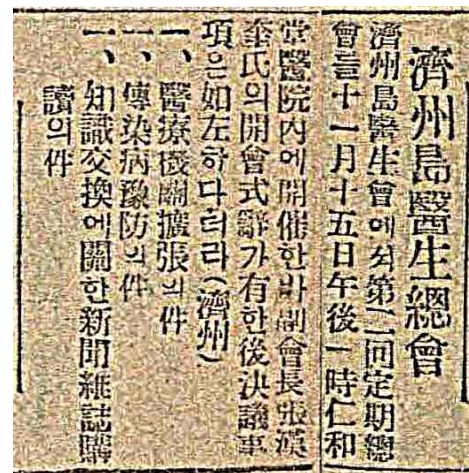 濟州島醫生總會
濟州島醫生會에서第二回定期總
會를十一月十五日午後一時仁和
堂醫院內에開催한바副會長張漢
奎氏의開會式辭가有한後決議事
項은如左하다더라(濟州)
一、醫療機關擴張의件
一、傳染病豫防의件
一、知識交換에關한新聞雜誌購
讀의件